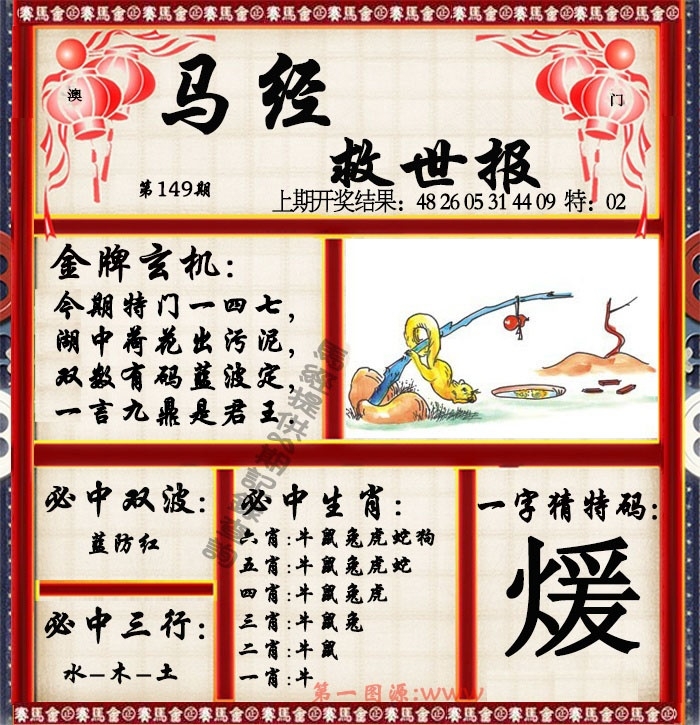 賽馬會 賽馬會 賽馬會 賽馬會 賽馬會 賽馬會 賽馬會 賽馬會 賽馬會
澳
门
马经
救世报
第149期
上期开奖结果：48 26 05 31 44 09 特：02
金牌玄机：
今期特门一四七，
湖中荷花出污泥，
双数有码蓝波定，
一言九鼎是君王.
必中双波：
蓝防红
必中三行：
水-木-土
必中生肖：
六肖:牛鼠兔虎蛇狗
五肖:牛鼠兔虎蛇
四肖:牛鼠兔虎
三肖:牛鼠兔
二肖:牛鼠
一肖:牛
一字猜特码：
煖
第一图源:www